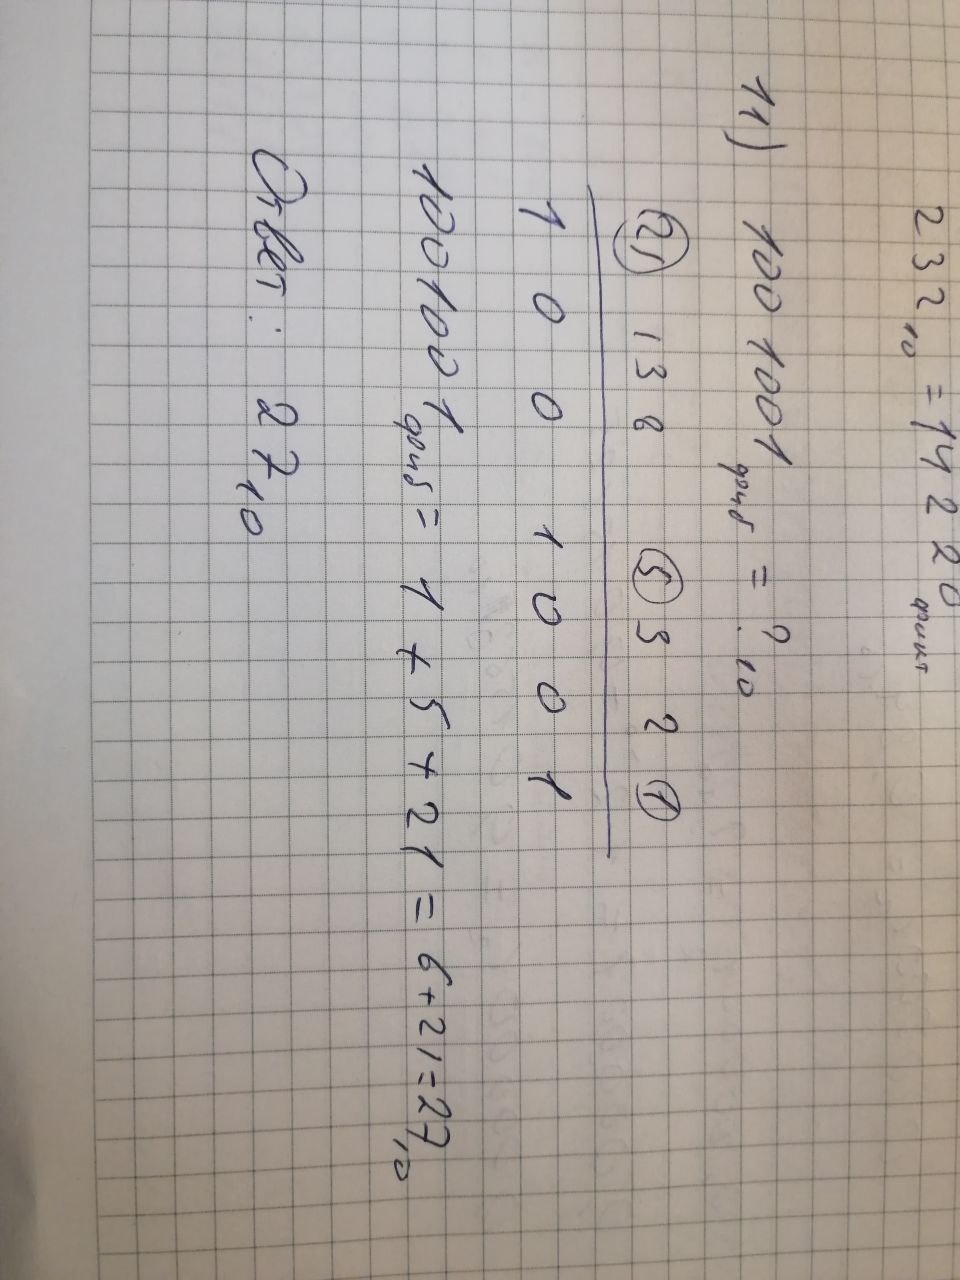 232₁₀ = 14220фиит
11) 1001001фиб = ?₁₀
21 13 8 5 3 2 1
1 0 0 1 0 0 1
1001001фиб = 1 + 5 + 21 = 6 + 21 = 27₁₀
Ответ: 27₁₀